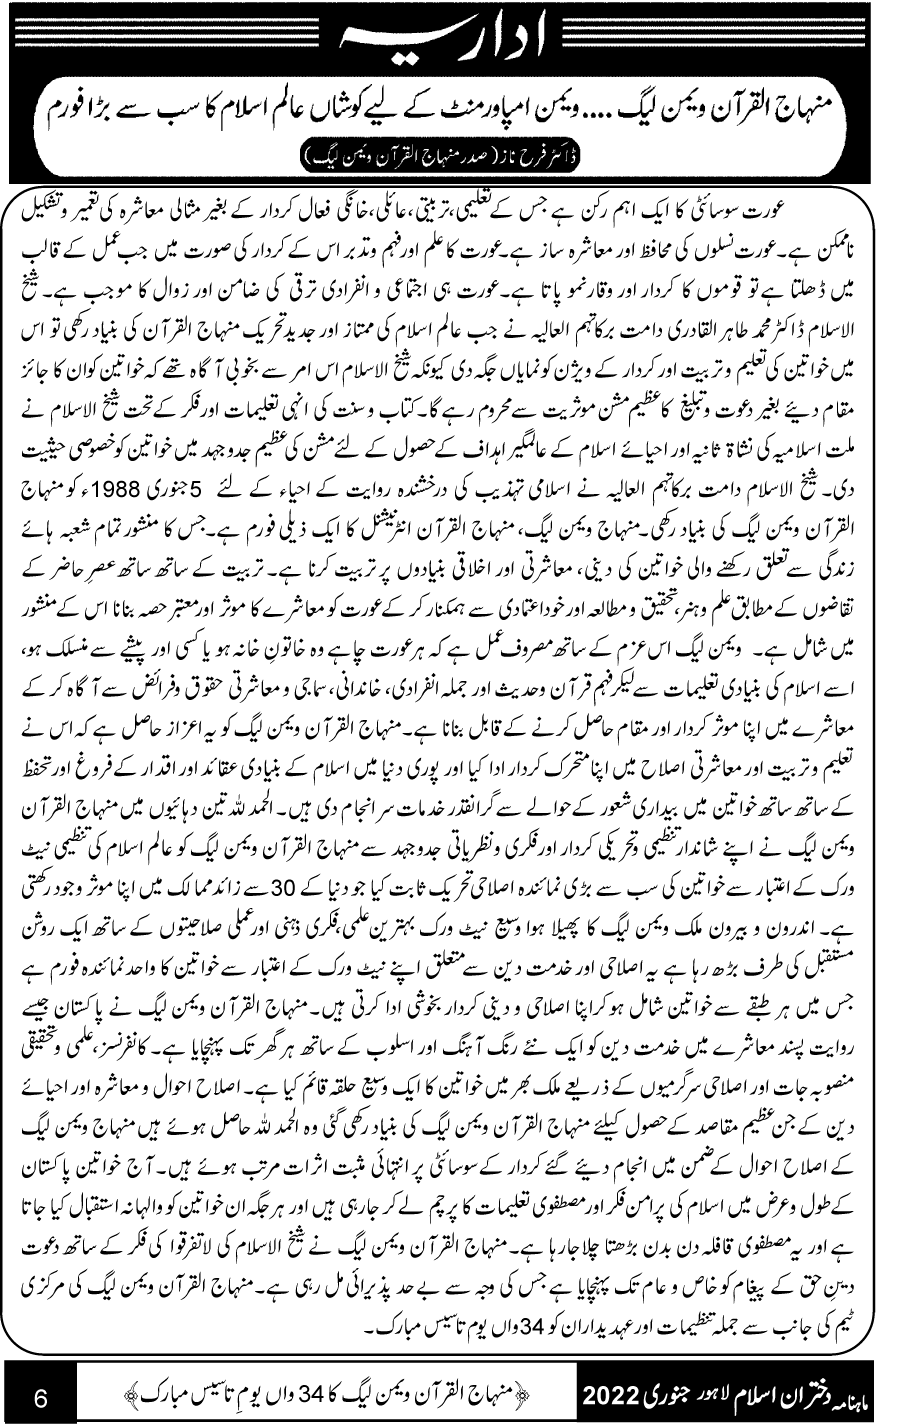 اداریہ
منہاج القرآن ویمن لیگ ....ویمن امپاورمنٹ کے لیے کوشاں عالم اسلام کا سب سے بڑا فورم
ڈاکٹر فرح ناز (صدر منہاج القرآن ویمن لیگ)
عورت سوسائٹی کا ایک اہم رکن ہے جس کے تعلیمی،تربیتی،عائلی،خانگی فعال کردار کے بغیر مثالی معاشرہ کی تعمیر و تشکیل
ناممکن ہے۔عورت نسلوں کی محافظ اور معاشرہ ساز ہے۔عورت کا علم اور فہم و تدبر اس کے کردار کی صورت میں جب عمل کے قالب
میں ڈھلتا ہے تو قوموں کا کردار اور وقار نمو پاتا ہے۔عورت ہی اجتماعی و انفرادی ترقی کی ضامن اور زوال کا موجب ہے۔ شیخ
الاسلام ڈاکٹر محمد طاہر القادری دامت برکاتہم العالیہ نے جب عالم اسلام کی ممتاز اور جدید تحریک منہاج القرآن کی بنیاد رکھی تو اس
میں خواتین کی تعلیم و تربیت اور کردار کے ویژن کو نمایاں جگہ دی کیونکہ شیخ الاسلام اس امر سے بخوبی آگاہ تھے کہ خواتین کو ان کا جائز
مقام دیئے بغیر دعوت و تبلیغ کا عظیم مشن موثریت سے محروم رہے گا۔کتاب و سنت کی انہی تعلیمات اور فکر کے تحت شیخ الاسلام نے
ملت اسلامیہ کی نشاۃ ثانیہ اور احیائے اسلام کے عالمگیر اہداف کے حصول کے لئے مشن کی عظیم جدوجہد میں خواتین کو خصوصی حیثیت
دی۔ شیخ الاسلام دامت برکاتہم العالیہ نے اسلامی تہذیب کی درخشندہ روایت کے احیاء کے لئے 5 جنوری 1988ء کو منہاج
القرآن ویمن لیگ کی بنیاد رکھی۔منہاج ویمن لیگ، منہاج القرآن انٹرنیشنل کا ایک ذیلی فورم ہے۔جس کا منشور تمام شعبہ ہائے
زندگی سے تعلق رکھنے والی خواتین کی دینی، معاشرتی اور اخلاقی بنیادوں پر تربیت کرنا ہے۔ تربیت کے ساتھ ساتھ عصرِ حاضر کے
تقاضوں کے مطابق علم و ہنر، تحقیق و مطالعہ اور خود اعتمادی سے ہمکنار کر کے عورت کو معاشرے کا موثر اور معتبر حصہ بنانا اس کے منشور
میں شامل ہے۔ ویمن لیگ اس عزم کے ساتھ مصروف عمل ہے کہ ہر عورت چاہے وہ خاتونِ خانہ ہو یا کسی اور پیشے سے منسلک ہو،
اسے اسلام کی بنیادی تعلیمات سے لیکر فہم قرآن و حدیث اور جملہ انفرادی، خاندانی، سماجی و معاشرتی حقوق و فرائض سے آگاہ کر کے
معاشرے میں اپنا موثر کردار اور مقام حاصل کرنے کے قابل بنانا ہے۔منہاج القرآن ویمن لیگ کو یہ اعزاز حاصل ہے کہ اس نے
تعلیم و تربیت اور معاشرتی اصلاح میں اپنا متحرک کردار ادا کیا اور پوری دنیا میں اسلام کے بنیادی عقائد اور اقدار کے فروغ اور تحفظ
کے ساتھ ساتھ خواتین میں بیداری شعور کے حوالے سے گرانقدر خدمات سرانجام دی ہیں۔ الحمدللہ تین دہائیوں میں منہاج القرآن
ویمن لیگ نے اپنے شاندار تنظیمی و تحریکی کردار اور فکری و نظریاتی جدوجہد سے منہاج القرآن ویمن لیگ کو عالم اسلام کی تنظیمی نیٹ
ورک کے اعتبار سے خواتین کی سب سے بڑی نمائندہ اصلاحی تحریک ثابت کیا جو دنیا کے 30 سے زائد ممالک میں اپنا موثر وجود رکھتی
ہے۔ اندرون و بیرون ملک ویمن لیگ کا پھیلا ہوا وسیع نیٹ ورک بہترین علمی،فکری ذہنی اور عملی صلاحیتوں کے ساتھ ایک روشن
مستقبل کی طرف بڑھ رہا ہے یہ اصلاحی اور خدمت دین سے متعلق اپنے نیٹ ورک کے اعتبار سے خواتین کا واحد نمائندہ فورم ہے
جس میں ہر طبقے سے خواتین شامل ہو کر اپنا اصلاحی و دینی کردار بخوشی ادا کرتی ہیں۔منہاج القرآن ویمن لیگ نے پاکستان جیسے
روایت پسند معاشرے میں خدمت دین کو ایک نئے رنگ آہنگ اور اسلوب کے ساتھ ہر گھر تک پہنچایا ہے۔ کانفرنسز، علمی و تحقیقی
منصوبہ جات اور اصلاحی سرگرمیوں کے ذریعے ملک بھر میں خواتین کا ایک وسیع حلقہ قائم کیا ہے۔ اصلاح احوال و معاشرہ اور احیائے
دین کے جن عظیم مقاصد کے حصول کیلئے منہاج القرآن ویمن لیگ کی بنیاد رکھی گئی وہ الحمدللہ حاصل ہوئے ہیں منہاج ویمن لیگ
کے اصلاح احوال کے ضمن میں انجام دیئے گئے کردار کے سوسائٹی پر انتہائی مثبت اثرات مرتب ہوئے ہیں۔ آج خواتین پاکستان
کے طول و عرض میں اسلام کی پرامن فکر اور مصطفوی تعلیمات کا پرچم لے کر جارہی ہیں اور ہر جگہ ان خواتین کو والہانہ استقبال کیا جاتا
ہے اور یہ مصطفوی قافلہ دن بدن بڑھتا چلا جارہا ہے۔منہاج القرآن ویمن لیگ نے شیخ الاسلام کی لاتفرقوا کی فکر کے ساتھ دعوت
دینِ حق کے پیغام کو خاص و عام تک پہنچایا ہے جس کی وجہ سے بے حد پذیرائی مل رہی ہے۔منہاج القرآن ویمن لیگ کی مرکزی
ٹیم کی جانب سے جملہ تنظیمات اور عہدیداران کو 34 واں یوم تاسیس مبارک۔
ماہنامہ دختران اسلام لاہور جنوری 2022
﴿منہاج القرآن ویمن لیگ کا 34 واں یومِ تاسیس مبارک﴾
6